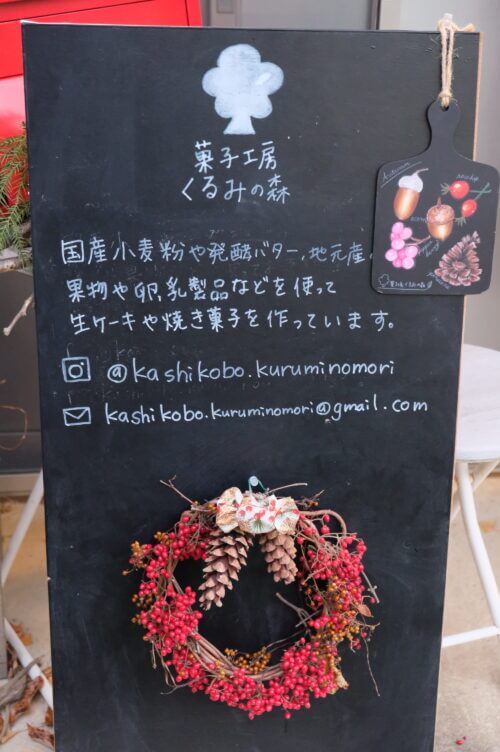 菓子工房
くるみの森
国産小麦粉や発酵バター、地元産
果物や卵、乳製品などを使って
生ケーキや焼き菓子を作っています。
@kashikobo.kuruminomori
kashikobo.kuruminomori@gmail.com
Autumn
rosehip
acorn